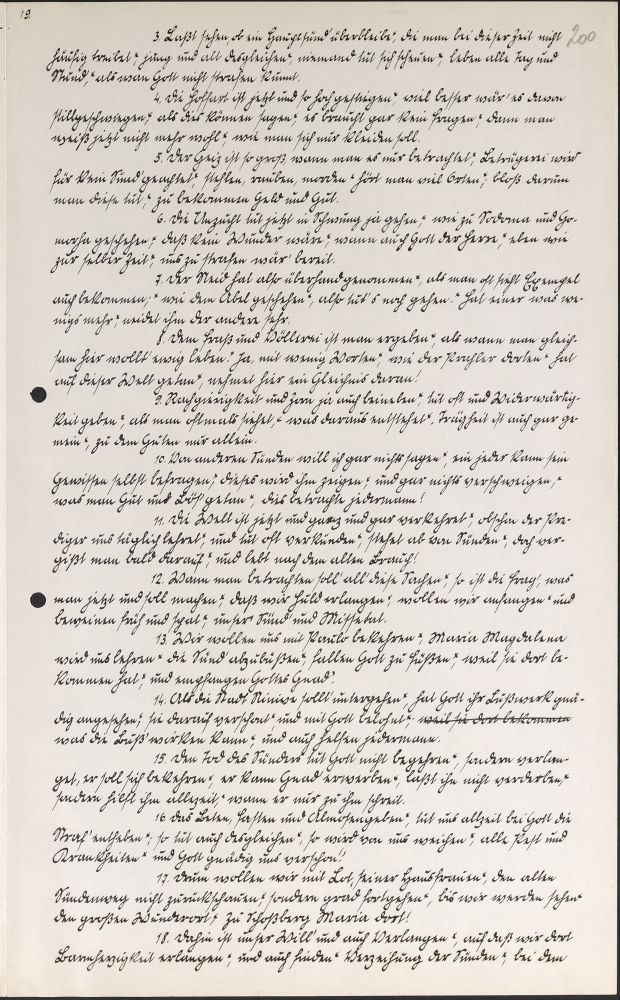 19.
200
3. Laßt sehen, ob ein Hauptsünd überbleibe", die man bei dieser Zeit nicht
häufig treibet", jung und alt desgleichen", niemand tut sich scheuen", leben alle Tag und
Stund," als wan Gott nicht strafen kunnt.
4. Die Hoffart ist jetzt und so hoch gestiegen", viel besser wär' es davon
stillgeschwiegen", als dies können sagen", es braucht gar kein fragen", dann man
weiß jetzt nicht mehr wohl", wie man sich nur kleiden soll.
5. Der Geiz ist so groß, wann man es nur betrachtet", Betrügerei wird
für kein Sünd' geachtet", stehlen, rauben, morden" hört man viel Orten", bloß darum
man diese tut," zu bekommen Geld und Gut.
6. Die Unzucht tut jetzt in Schwung ja gehen", wie zu Sodoma und Go-
morha geschehen", daß kein Wunder wäre", wann auch Gott der Herre," eben wie
zur selber Zeit", uns zu strafen wär' bereit.
7. Der Neid hat also überhandgenommen", als man oft sieht Exempel
auch bekommen;" wie dem Abel geschehen", also tut's noch gehen." Hat einer was we-
nigs mehr", neidet ihm der andere sehr.
8. Dem Fraß und Völlerei ist man ergeben", als wann man gleich-
sam hier wollt' ewig leben." Ja, mit wenig Worten", wie der Prahler dorten" hat
auf dieser Welt getan", nehmet hier ein Gleichnis daran!
9. Rachgierigkeit und Zorn ja auch beineben" tut oft und Weiderwärtig-
keit geben", als man oftmals siehet," was daraus entstehet". Trägheit ist auch gar ge-
mein", zu dem Guten nur allein.
10. Von anderen Sünden will ich gar nichts sagen", ein jeder kann sein
Gewissen selbst befragen", dieses wird ihm zeigen", und gar nichts verschweigen,"
was man Gut und Bös' getan", dies betrachte jedermann!
11. Die Welt ist jetzt und ganz und gar verkehret", obschon der Pre-
diger uns täglich lehret", und tut oft verkünden", stehet ab von Sünden", doch ver-
gißt man bald darauf", und lebt nach dem alten Brauch!
12. Wann man betrachten soll' all' diese Sachen", so ist die Frag', was
man jetzt und soll machen", daß wir Huld erlangen", wollen wir anfangen" und
beweinen früh und spat", unser' Sünd' und Missetat.
13. Wir wollen uns mit Paulo bekehren", Maria Magdalena
wird uns lehren" die Sünd' abzubüßen", fallen Gott zu Füßen", weil sie dort be-
kommen hat", und empfangen Gottes Gnad'.
14. Als die Stadt Ninive sollt' untergehen" hat Gott ihr Bußwerk gnä-
dig angesehen", sie darauf verschont" und mit Gott belohnt", weil sie dort bekommen
was die Buß' wirken kann", und auch helfen jedermann.
15. Den Tod des Sünders tut Gott nicht begehren", sondern verlan-
get, er soll sich bekehren", er kann Gnad' erwerben", läßt ihn nicht verderben,"
sondern hilft ihm allezeit," wann er nur zu ihm schreit.
16. Das Beten, Fasten und Almosengeben" tut uns allzeit bei Gott die
Straf' entheben"; so tut auch desgleichen", so wird von uns weichen", alle Pest und
Krankheiten" und Gott gnädig uns verschon'!
17. Drum wollen wir mit Lot, seiner Hausfrauen", den alten
Sündenweg nicht zurückschauen", sondern grad fortgehen", bis wir werden sehen"
den großen Wunderort", zu Schoßberg Maria dort!
18. Dahin ist unser Will' und auch Verlangen", auf daß wir dort
Barmherzigkeit erlangen", und auch finden" Verzeihung der Sünden", bei dem